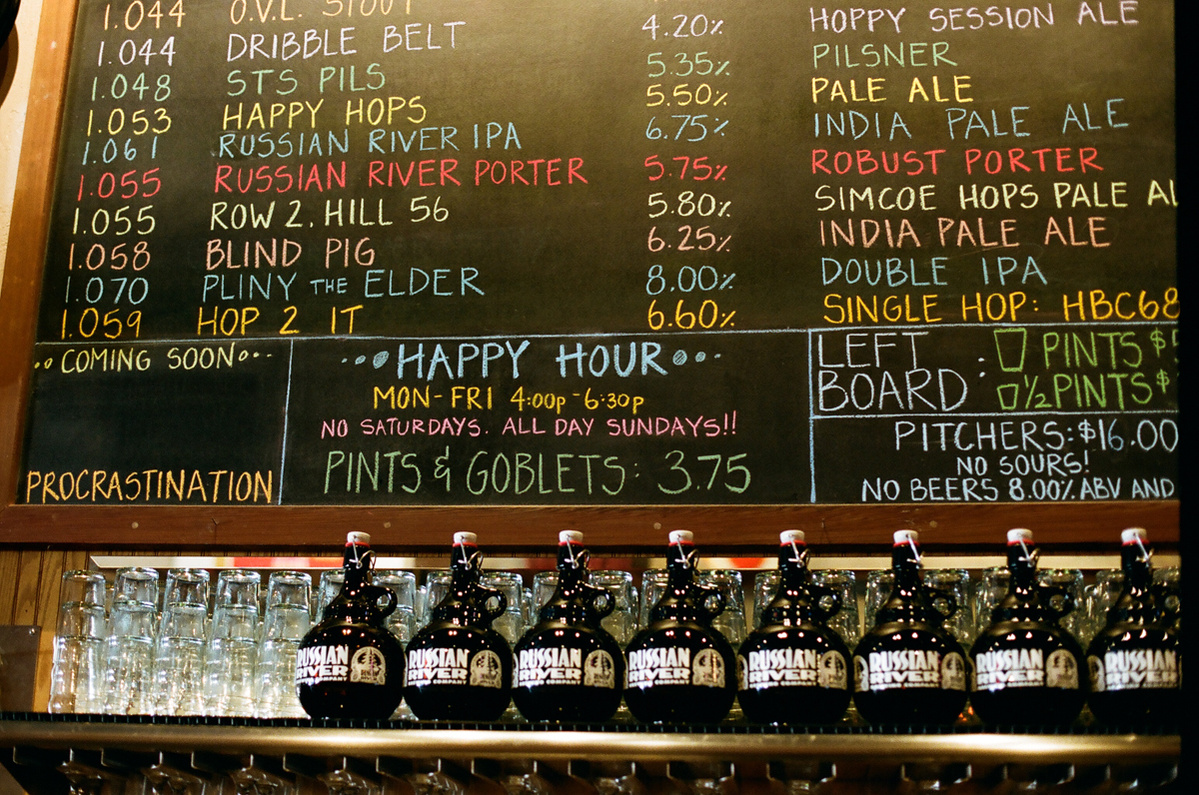 1.044 O.V.L. STOUT
1.044 DRIBBLE BELT 4.20% HOPPY SESSION ALE
1.048 STS PILS 5.35% PILSNER
1.053 HAPPY HOPS 5.50% PALE ALE
1.061 RUSSIAN RIVER IPA 6.75% INDIA PALE ALE
1.055 RUSSIAN RIVER PORTER 5.75% ROBUST PORTER
1.055 ROW 2, HILL 56 5.80% SIMCOE HOPS PALE AL
1.058 BLIND PIG 6.25% INDIA PALE ALE
1.070 PLINY THE ELDER 8.00% DOUBLE IPA
1.059 HOP 2 IT 6.60% SINGLE HOP: HBC68
COMING SOON
PROCRASTINATION
HAPPY HOUR
MON-FRI 4:00P-6:30P
NO SATURDAYS. ALL DAY SUNDAYS!!
PINTS & GOBLETS: 3.75
LEFT BOARD:
PINTS $5
1/2 PINTS $
PITCHERS: $16.00
NO SOURS!
NO BEERS 8.00% ABV AND
RUSSIAN
RIVER
RUSSIAN
RIVER
BREWING COMPANY
RUSSIAN
RIVER
BREWING COMPANY
RUSSIAN
RIVER
BREWING COMPANY
RUSSIAN
RIVER
BREWING COMPANY
RUSSIAN
RIVER
BREWING COMPANY
RUSSIAN
RIVER
BREWING COMPANY
RUSSIAN
RIVER